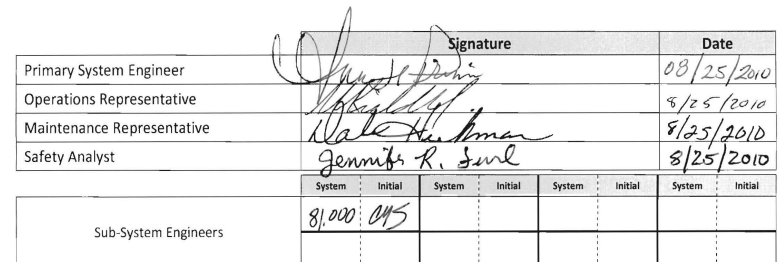 Signature Date
Primary System Engineer 08/25/2010
Operations Representative 8/25/2010
Maintenance Representative 8/25/2010
Safety Analyst Jennifer R. 8/25/2010
System Initial System Initial System Initial System Initial
Sub-System Engineers 81.000